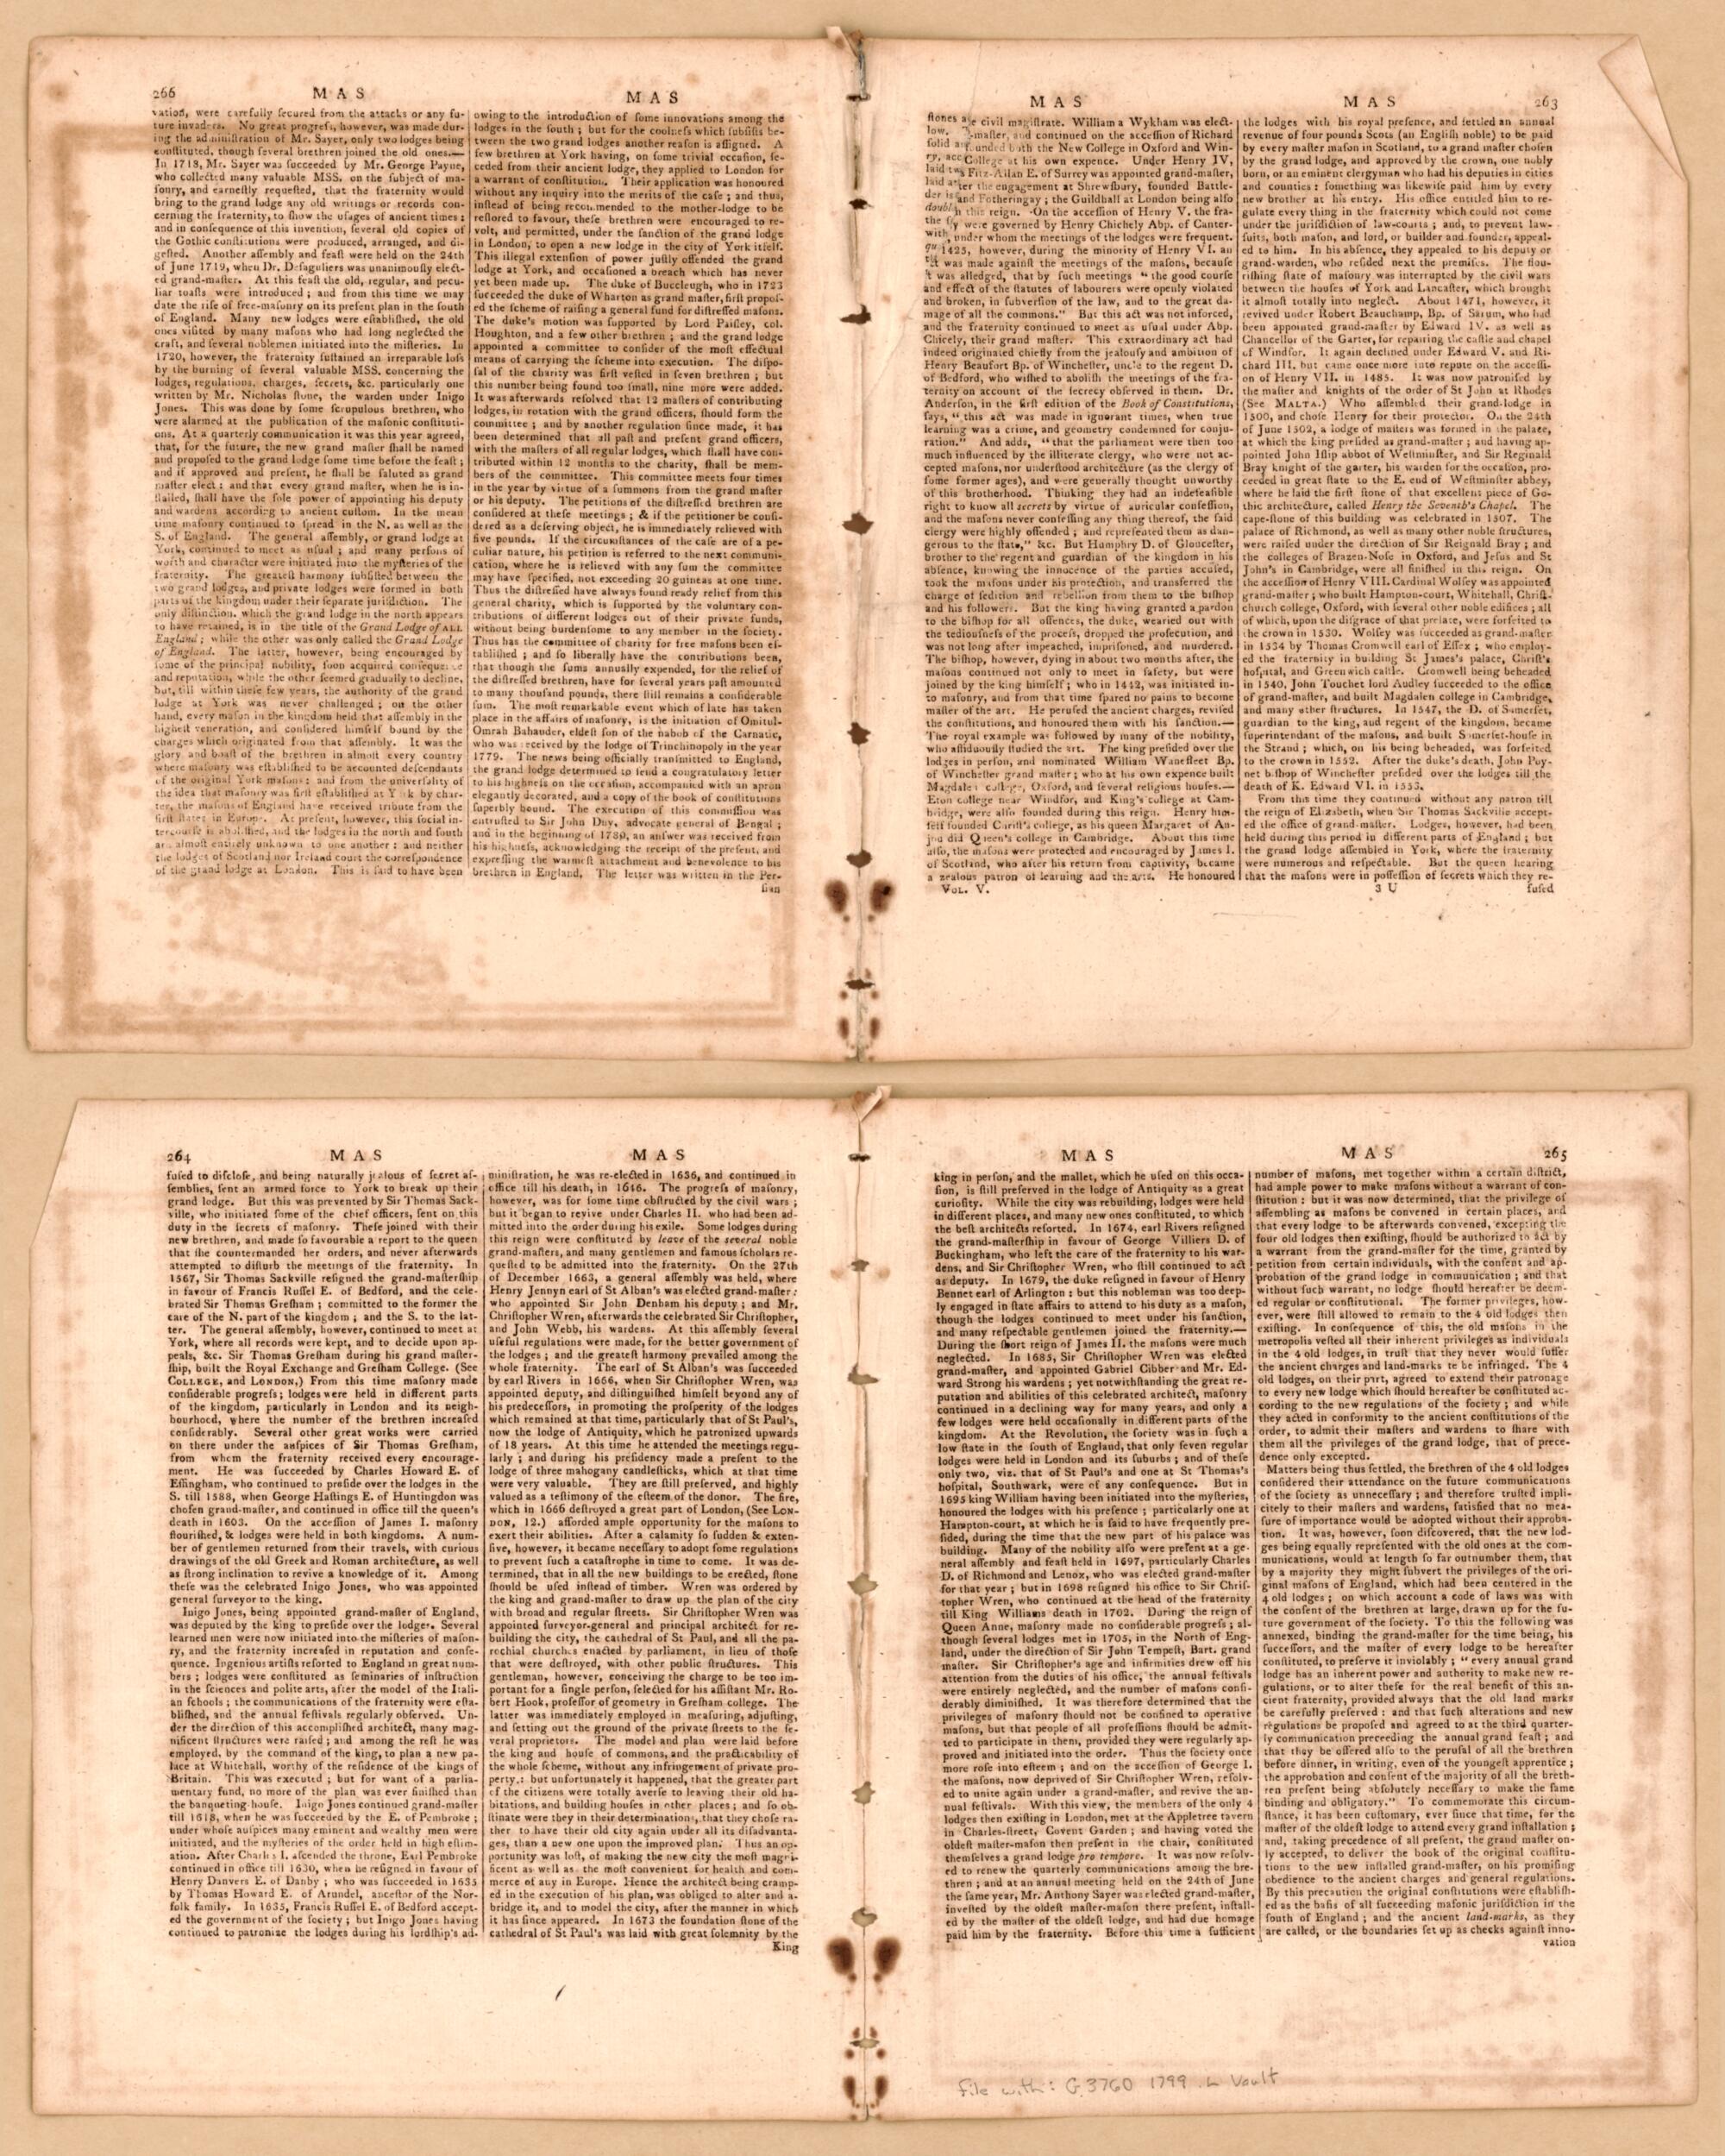 266
MAS
MAS
vation, were carefully ſecured from the attacks or any fu-
ture invaders. No great progreſs, however, was made dur-
ing the adminiſtration of Mr. Sayer, only two lodges being
conſtituted, though ſeveral brethren joined the old ones.—
In 1718, Mr. Sayer was ſucceeded by Mr. George Payne,
who collected many valuable MSS. on the ſubject of ma-
ſonry, and earneſtly requeſted, that the fraternity would
bring to the grand lodge any old writings or records con-
cerning the fraternity, to ſhow the uſages of ancient times:
and in conſequence of this invention, ſeveral old copies of
the Gothic conſtitutions were produced, arranged, and di-
geſted. Another aſſembly and feaſt were held on the 24th
of June 1719, when Dr. Deſaguliers was unanimouſly elect-
ed grand-maſter. At this feaſt the old, regular, and pecu-
liar toaſts were introduced; and from this time we may
date the riſe of free-maſonry on its preſent plan in the ſouth
of England. Many new lodges were eſtabliſhed, the old
ones viſited by many maſons who had long neglected the
craft, and ſeveral noblemen initiated into the miſteries. In
1720, however, the fraternity ſuſtained an irreparable loſs
by the burning of ſeveral valuable MSS. concerning the
lodges, regulations, charges, ſecrets, &c. particularly one
written by Mr. Nicholas ſtone, the warden under Inigo
Jones. This was done by ſome ſcrupulous brethren, who
were alarmed at the publication of the maſonic conſtituti-
ons. At a quarterly communication it was this year agreed,
that, for the future, the new grand maſter ſhall be named
and propoſed to the grand lodge ſome time before the feaſt;
and if approved and preſent, he ſhall be ſaluted as grand
maſter elect: and that every grand maſter, when he is in-
ſtalled, ſhall have the ſole power of appointing his deputy
and wardens according to ancient cuſtom. In the mean
time maſonry continued to ſpread in the N. as well as the
S. of England. The general aſſembly, or grand lodge at
York, continued to meet as uſual; and many perſons of
worth and character were initiated into the myſteries of the
fraternity. The greateſt harmony ſubſiſted between the
two grand lodges, and private lodges were formed in both
parts of the kingdom under their ſeparate juriſdiction. The
only diſtinction, which the grand lodge in the north appears
to have retained, is in the title of the Grand Lodge of ALL
England; while the other was only called the Grand Lodge
of England. The latter, however, being encouraged by
ſome of the principal nobility, ſoon acquired conſequence
and reputation, while the other ſeemed gradually to decline,
but, till within theſe few years, the authority of the grand
lodge at York was never challenged; on the other
hand, every maſon in the kingdom held that aſſembly in the
higheſt veneration, and conſidered himſelf bound by the
charges which originated from that aſſembly. It was the
glory and boaſt of the brethren in almoſt every country
where maſonry was eſtabliſhed to be accounted deſcendants
of the original York maſons: and from the univerſality of
the idea that maſonry was firſt eſtabliſhed at York by char-
ter, the maſons of England have received tribute from the
firſt ſtates in Europe. At preſent, however, this ſocial in-
tercourſe is aboliſhed, and the lodges in the north and ſouth
are almoſt entirely unknown to one another: and neither
the lodges of Scotland nor Ireland court the correſpondence
of the grand lodge at London. This is ſaid to have been
owing to the introduction of ſome innovations among the
lodges in the ſouth; but for the coolneſs which ſubſiſts be-
tween the two grand lodges another reaſon is aſſigned. A
few brethren at York having, on ſome trivial occaſion, ſe-
ceded from their ancient lodge, they applied to London for
a warrant of conſtitution. Their application was honoured
without any inquiry into the merits of the caſe; and thus,
inſtead of being recommended to the mother-lodge to be
reſtored to favour, theſe brethren were encouraged to re-
volt, and permitted, under the ſanction of the grand lodge
in London, to open a new lodge in the city of York itſelf.
This illegal extenſion of power juſtly offended the grand
lodge at York, and occaſioned a breach which has never
yet been made up. The duke of Buccleugh, who in 1723
ſucceeded the duke of Wharton as grand maſter, firſt propoſ-
ed the ſcheme of raiſing a general fund for diſtreſſed maſons.
The duke's motion was ſupported by Lord Paiſley, col.
Houghton, and a few other brethren; and the grand lodge
appointed a committee to conſider of the moſt effectual
means of carrying the ſcheme into execution. The diſpo-
ſal of the charity was firſt veſted in ſeven brethren; but
this number being found too ſmall, nine more were added.
It was afterwards reſolved that 12 maſters of contributing
lodges, in rotation with the grand officers, ſhould form the
committee; and by another regulation ſince made, it has
been determined that all paſt and preſent grand officers,
with the maſters of all regular lodges, which ſhall have con-
tributed within 12 months to the charity, ſhall be mem-
bers of the committee. This committee meets four times
in the year by virtue of a ſummons from the grand maſter
or his deputy. The petitions of the diſtreſſed brethren are
conſidered at theſe meetings; & if the petitioner be conſi-
dered as a deſerving object, he is immediately relieved with
five pounds. If the circumſtances of the caſe are of a pe-
culiar nature, his petition is referred to the next communi-
cation, where he is relieved with any ſum the committee
may have ſpecified, not exceeding 20 guineas at one time.
Thus the diſtreſſed have always found ready relief from this
general charity, which is ſupported by the voluntary con-
tributions of different lodges out of their private funds,
without being burdenſome to any member in the ſociety.
Thus has the committee of charity for free maſons been eſ-
tabliſhed; and ſo liberally have the contributions been,
that though the ſums annually expended, for the relief of
the diſtreſſed brethren, have for ſeveral years paſt amounted
to many thouſand pounds, there ſtill remains a conſiderable
ſum. The moſt remarkable event which of late has taken
place in the affairs of maſonry, is the initiation of Omitul-
Omrah Bahauder, eldeſt ſon of the nabob of the Carnatic,
who was received by the lodge of Trinchinopoly in the year
1779. The news being officially tranſmitted to England,
the grand lodge determined to ſend a congratulatory letter
to his highneſs on the occaſion, accompanied with an apron
elegantly decorated, and a copy of the book of conſtitutions
ſuperbly bound. The execution of this commiſſion was
entruſted to Sir John Day, advocate general of Bengal;
and in the beginning of 1780, an anſwer was received from
his highneſs, acknowledging the receipt of the preſent, and
expreſſing the warmeſt attachment and benevolence to his
brethren in England. The letter was written in the Per-
ſian
MAS
MAS
263
civil magiſtrate. William a Wykham was elect-
-maſter, and continued on the acceſſion of Richard
founded both the New College in Oxford and Win-
College at his own expence. Under Henry IV,
Fitz-Allan E. of Surrey was appointed grand-maſter,
after the engagement at Shrewſbury, founded Battle-
and Fotheringay; the Guildhall at London being alſo
in this reign. On the acceſſion of Henry V. the fra-
were governed by Henry Chichely Abp. of Canter-
under whom the meetings of the lodges were frequent.
1425, however, during the minority of Henry VI. an
act was made againſt the meetings of the maſons, becauſe
it was alledged, that by ſuch meetings "the good courſe
and effect of the ſtatutes of labourers were openly violated
and broken, in ſubverſion of the law, and to the great da-
mage of all the commons." But this act was not inforced,
and the fraternity continued to meet as uſual under Abp.
Chicely, their grand maſter. This extraordinary act had
indeed originated chiefly from the jealouſy and ambition of
Henry Beaufort Bp. of Wincheſter, uncle to the regent D.
of Bedford, who wiſhed to aboliſh the meetings of the fra-
ternity on account of the ſecrecy obſerved in them. Dr.
Anderſon, in the firſt edition of the Book of Conſtitutions,
ſays, "this act was made in ignorant times, when true
learning was a crime, and geometry condemned for conju-
ration." And adds, "that the parliament were then too
much influenced by the illiterate clergy, who were not ac-
cepted maſons, nor underſtood architecture (as the clergy of
ſome former ages), and were generally thought unworthy
of this brotherhood. Thinking they had an indefeaſible
right to know all ſecrets by virtue of auricular confeſſion,
and the maſons never confeſſing any thing thereof, the ſaid
clergy were highly offended; and repreſented them as dan-
gerous to the ſtate," &c. But Humphry D. of Glouceſter,
brother to the regent and guardian of the kingdom in his
abſence, knowing the innocence of the parties accuſed,
took the maſons under his protection, and transferred the
charge of ſedition and rebellion from them to the biſhop
and his followers. But the king having granted a pardon
to the biſhop for all offences, the duke, wearied out with
the tediouſneſs of the proceſs, dropped the proſecution, and
was not long after impeached, impriſoned, and murdered.
The biſhop, however, dying in about two months after, the
maſons continued not only to meet in ſafety, but were
joined by the king himſelf; who in 1442, was initiated in-
to maſonry, and from that time ſpared no pains to become
maſter of the art. He peruſed the ancient charges, reviſed
the conſtitutions, and honoured them with his ſanction.—
The royal example was followed by many of the nobility,
who aſſiduouſly ſtudied the art. The king preſided over the
lodges in perſon, and nominated William Wanefleet Bp.
of Wincheſter grand maſter; who at his own expence built
Magdalen college, Oxford, and ſeveral religious houſes.—
Eton college near Windſor, and King's college at Cam-
bridge, were alſo founded during this reign. Henry him-
ſelf founded Chriſt's college, as his queen Margaret of An-
jou did Queen's college in Cambridge. About this time
alſo, the maſons were protected and encouraged by James I.
of Scotland, who after his return from captivity, became
a zealous patron of learning and the arts. He honoured
VOL. V.
the lodges with his royal preſence, and ſettled an annual
revenue of four pounds Scots (an Engliſh noble) to be paid
by every maſter maſon in Scotland, to a grand maſter choſen
by the grand lodge, and approved by the crown, one nobly
born, or an eminent clergyman who had his deputies in cities
and counties: ſomething was likewiſe paid him by every
new brother at his entry. His office entitled him to re-
gulate every thing in the fraternity which could not come
under the juriſdiction of law-courts; and, to prevent law-
ſuits, both maſon, and lord, or builder and founder, appeal-
ed to him. In his abſence, they appealed to his deputy or
grand-warden, who reſided next the premiſes. The flou-
riſhing ſtate of maſonry was interrupted by the civil wars
between the houſes of York and Lancaſter, which brought
it almoſt totally into neglect. About 1471, however, it
revived under Robert Beauchamp, Bp. of Sarum, who had
been appointed grand-maſter by Edward IV. as well as
Chancellor of the Garter, for repairing the caſtle and chapel
of Windſor. It again declined under Edward V. and Ri-
chard III. but came once more into repute on the acceſſi-
on of Henry VII. in 1485. It was now patroniſed by
the maſter and knights of the order of St John at Rhodes
(See MALTA.) Who aſſembled their grand-lodge in
1500, and choſe Henry for their protector. On the 24th
of June 1502, a lodge of maſters was formed in the palace,
at which the king preſided as grand-maſter; and having ap-
pointed John Iſlip abbot of Weſtminſter, and Sir Reginald
Bray knight of the garter, his warden for the occaſion, pro-
ceeded in great ſtate to the E. end of Weſtminſter abbey,
where he laid the firſt ſtone of that excellent piece of Go-
thic architecture, called Henry the Seventh's Chapel. The
cape-ſtone of this building was celebrated in 1507. The
palace of Richmond, as well as many other noble ſtructures,
were raiſed under the direction of Sir Reignald Bray; and
the colleges of Brazen-Noſe in Oxford, and Jeſus and St
John's in Cambridge, were all finiſhed in this reign. On
the acceſſion of Henry VIII. Cardinal Wolſey was appointed
grand-maſter; who built Hampton-court, Whitehall, Chriſt-
church college, Oxford, with ſeveral other noble edifices; all
of which, upon the diſgrace of that prelate, were forfeited to
the crown in 1530. Wolſey was ſucceeded as grand-maſter
in 1534 by Thomas Cromwell earl of Eſſex; who employ-
ed the fraternity in building St James's palace, Chriſt's
hoſpital, and Greenwich caſtle. Cromwell being beheaded
in 1540, John Touchet lord Audley ſucceeded to the office
of grand-maſter, and built Magdalen college in Cambridge,
and many other ſtructures. In 1547, the D. of Somerſet,
guardian to the king, and regent of the kingdom, became
ſuperintendant of the maſons, and built Somerſet-houſe in
the Strand; which, on his being beheaded, was forfeited
to the crown in 1552. After the duke's death, John Poy-
net biſhop of Wincheſter preſided over the lodges till the
death of K. Edward VI. in 1553.
From this time they continued without any patron till
the reign of Elizabeth, when Sir Thomas Sackville accept-
ed the office of grand-maſter. Lodges, however, had been
held during this period in different parts of England; but
the grand lodge aſſembled in York, where the fraternity
were numerous and reſpectable. But the queen hearing
that the maſons were in poſſeſſion of ſecrets which they re-
3 U
fuſed
264
MAS
MAS
fuſed to diſcloſe, and being naturally jealous of ſecret aſ-
ſemblies, ſent an armed force to York to break up their
grand lodge. But this was prevented by Sir Thomas Sack-
ville, who initiated ſome of the chief officers, ſent on this
duty in the ſecrets of maſonry. Theſe joined with their
new brethren, and made ſo favourable a report to the queen
that ſhe countermanded her orders, and never afterwards
attempted to diſturb the meetings of the fraternity. In
1567, Sir Thomas Sackville reſigned the grand-maſterſhip
in favour of Francis Ruſſel E. of Bedford, and the cele-
brated Sir Thomas Greſham; committed to the former the
care of the N. part of the kingdom; and the S. to the lat-
ter. The general aſſembly, however, continued to meet at
York, where all records were kept, and to decide upon ap-
peals, &c. Sir Thomas Greſham during his grand maſter-
ſhip, built the Royal Exchange and Greſham College. (See
COLLEGE, and LONDON,) From this time maſonry made
conſiderable progreſs; lodges were held in different parts
of the kingdom, particularly in London and its neigh-
bourhood, where the number of the brethren increaſed
conſiderably. Several other great works were carried
on there under the auſpices of Sir Thomas Greſham,
from whom the fraternity received every encourage-
ment. He was ſucceeded by Charles Howard E. of
Effingham, who continued to preſide over the lodges in the
S. till 1588, when George Haſtings E. of Huntingdon was
choſen grand-maſter, and continued in office till the queen's
death in 1603. On the acceſſion of James I. maſonry
flouriſhed, & lodges were held in both kingdoms. A num-
ber of gentlemen returned from their travels, with curious
drawings of the old Greek and Roman architecture, as well
as ſtrong inclination to revive a knowledge of it. Among
theſe was the celebrated Inigo Jones, who was appointed
general ſurveyor to the king.
Inigo Jones, being appointed grand-maſter of England,
was deputed by the king to preſide over the lodges. Several
learned men were now initiated into the miſteries of maſon-
ry, and the fraternity increaſed in reputation and conſe-
quence. Ingenious artiſts reſorted to England in great num-
bers; lodges were conſtituted as ſeminaries of inſtruction
in the ſciences and polite arts, after the model of the Itali-
an ſchools; the communications of the fraternity were eſta-
bliſhed, and the annual feſtivals regularly obſerved. Un-
der the direction of this accompliſhed architect, many mag-
nificent ſtructures were raiſed; and among the reſt he was
employed, by the command of the king, to plan a new pa-
lace at Whitehall, worthy of the reſidence of the kings of
Britain. This was executed; but for want of a parlia-
mentary fund, no more of the plan was ever finiſhed than
the banqueting-houſe. Inigo Jones continued grand-maſter
till 1618, when he was ſucceeded by the E. of Pembroke;
under whoſe auſpices many eminent and wealthy men were
initiated, and the myſteries of the order held in high eſtim-
ation. After Charles I. aſcended the throne, Earl Pembroke
continued in office till 1630, when he reſigned in favour of
Henry Danvers E. of Danby; who was ſucceeded in 1635
by Thomas Howard E. of Arundel, anceſtor of the Nor-
folk family. In 1635, Francis Ruſſel E. of Bedford accept-
ed the government of the ſociety; but Inigo Jones having
continued to patronize the lodges during his lordſhip's ad-
miniſtration, he was re-elected in 1636, and continued in
office till his death, in 1646. The progreſs of maſonry,
however, was for ſome time obſtructed by the civil wars;
but it began to revive under Charles II. who had been ad-
mitted into the order during his exile. Some lodges during
this reign were conſtituted by leave of the ſeveral noble
grand-maſters, and many gentlemen and famous ſcholars re-
queſted to be admitted into the fraternity. On the 27th
of December 1663, a general aſſembly was held, where
Henry Jennyn earl of St Alban's was elected grand-maſter:
who appointed Sir John Denham his deputy; and Mr.
Chriſtopher Wren, afterwards the celebrated Sir Chriſtopher,
and John Webb, his wardens. At this aſſembly ſeveral
uſeful regulations were made, for the better government of
the lodges; and the greateſt harmony prevailed among the
whole fraternity. The earl of St Alban's was ſucceeded
by earl Rivers in 1666, when Sir Chriſtopher Wren, was
appointed deputy, and diſtinguiſhed himſelf beyond any of
his predeceſſors, in promoting the proſperity of the lodges
which remained at that time, particularly that of St Paul's,
now the lodge of Antiquity, which he patronized upwards
of 18 years. At this time he attended the meetings regu-
larly; and during his preſidency made a preſent to the
lodge of three mahogany candleſticks, which at that time
were very valuable. They are ſtill preſerved, and highly
valued as a teſtimony of the eſteem of the donor. The fire,
which in 1666 deſtroyed a great part of London, (See LON-
DON, 12.) afforded ample opportunity for the maſons to
exert their abilities. After a calamity ſo ſudden & exten-
ſive, however, it became neceſſary to adopt ſome regulations
to prevent ſuch a cataſtrophe in time to come. It was de-
termined, that in all the new buildings to be erected, ſtone
ſhould be uſed inſtead of timber. Wren was ordered by
the king and grand-maſter to draw up the plan of the city
with broad and regular ſtreets. Sir Chriſtopher Wren was
appointed ſurveyor-general and principal architect for re-
building the city, the cathedral of St Paul, and all the pa-
rochial churches enacted by parliament, in lieu of thoſe
that were deſtroyed, with other public ſtructures. This
gentleman, however, conceiving the charge to be too im-
portant for a ſingle perſon, ſelected for his aſſiſtant Mr. Ro-
bert Hook, profeſſor of geometry in Greſham college. The
latter was immediately employed in meaſuring, adjuſting,
and ſetting out the ground of the private ſtreets to the ſe-
veral proprietors. The model and plan were laid before
the king and houſe of commons, and the practicability of
the whole ſcheme, without any infringement of private pro-
perty: but unfortunately it happened, that the greater part
of the citizens were totally averſe to leaving their old ha-
bitations, and building houſes in other places; and ſo ob-
ſtinate were they in their determinations, that they choſe ra-
ther to have their old city again under all its diſadvanta-
ges, than a new one upon the improved plan. Thus an op-
portunity was loſt, of making the new city the moſt magni-
ficent as well as the moſt convenient for health and com-
merce of any in Europe. Hence the architect being cramp-
ed in the execution of his plan, was obliged to alter and a-
bridge it, and to model the city, after the manner in which
it has ſince appeared. In 1673 the foundation ſtone of the
cathedral of St Paul's was laid with great ſolemnity by the
King
MAS
MAS
265
king in perſon, and the mallet, which he uſed on this occa-
ſion, is ſtill preſerved in the lodge of Antiquity as a great
curioſity. While the city was rebuilding, lodges were held
in different places, and many new ones conſtituted, to which
the beſt architects reſorted. In 1674, earl Rivers reſigned
the grand-maſterſhip in favour of George Villiers D. of
Buckingham, who left the care of the fraternity to his war-
dens, and Sir Chriſtopher Wren, who ſtill continued to act
as deputy. In 1679, the duke reſigned in favour of Henry
Bennet earl of Arlington: but this nobleman was too deep-
ly engaged in ſtate affairs to attend to his duty as a maſon,
though the lodges continued to meet under his ſanction,
and many reſpectable gentlemen joined the fraternity.—
During the ſhort reign of James II. the maſons were much
neglected. In 1685, Sir Chriſtopher Wren was elected
grand-maſter, and appointed Gabriel Cibber and Mr. Ed-
ward Strong his wardens; yet notwithſtanding the great re-
putation and abilities of this celebrated architect, maſonry
continued in a declining way for many years, and only a
few lodges were held occaſionally in different parts of the
kingdom. At the Revolution, the ſociety was in ſuch a
low ſtate in the ſouth of England, that only ſeven regular
lodges were held in London and its ſuburbs; and of theſe
only two, viz. that of St Paul's and one at St Thomas's
hoſpital, Southwark, were of any conſequence. But in
1695 king William having been initiated into the myſteries,
honoured the lodges with his preſence; particularly one at
Hampton-court, at which he is ſaid to have frequently pre-
ſided, during the time that the new part of his palace was
building. Many of the nobility alſo were preſent at a ge-
neral aſſembly and feaſt held in 1697, particularly Charles
D. of Richmond and Lenox, who was elected grand-maſter
for that year; but in 1698 reſigned his office to Sir Chriſ-
topher Wren, who continued at the head of the fraternity
till King Williams death in 1702. During the reign of
Queen Anne, maſonry made no conſiderable progreſs; al-
though ſeveral lodges met in 1705, in the North of Eng-
land, under the direction of Sir John Tempeſt, Bart. grand
maſter. Sir Chriſtopher's age and infirmities drew off his
attention from the duties of his office, the annual feſtivals
were entirely neglected, and the number of maſons conſi-
derably diminiſhed. It was therefore determined that the
privileges of maſonry ſhould not be confined to operative
maſons, but that people of all profeſſions ſhould be admit-
ted to participate in them, provided they were regularly ap-
proved and initiated into the order. Thus the ſociety once
more roſe into eſteem; and on the acceſſion of George I.
the maſons, now deprived of Sir Chriſtopher Wren, reſolv-
ed to unite again under a grand-maſter, and revive the an-
nual feſtivals. With this view, the members of the only 4
lodges then exiſting in London, met at the Appletree tavern
in Charles-ſtreet, Covent Garden; and having voted the
oldeſt maſter-maſon then preſent in the chair, conſtituted
themſelves a grand lodge pro tempore. It was now reſolv-
ed to renew the quarterly communications among the bre-
thren; and at an annual meeting held on the 24th of June
the ſame year, Mr. Anthony Sayer was elected grand-maſter,
inveſted by the oldeſt maſter-maſon there preſent, inſtall-
ed by the maſter of the oldeſt lodge, and had due homage
paid him by the fraternity. Before this time a ſufficient
number of maſons, met together within a certain diſtrict,
had ample power to make maſons without a warrant of con-
ſtitution: but it was now determined, that the privilege of
aſſembling as maſons be convened in certain places, and
that every lodge to be afterwards convened, excepting the
four old lodges then exiſting, ſhould be authorized to act by
a warrant from the grand-maſter for the time, granted by
petition from certain individuals, with the conſent and ap-
probation of the grand lodge in communication; and that
without ſuch warrant, no lodge ſhould hereafter be deem-
ed regular or conſtitutional. The former privileges, how-
ever, were ſtill allowed to remain to the 4 old lodges then
exiſting. In conſequence of this, the old maſons in the
metropolis veſted all their inherent privileges as individuals
in the 4 old lodges, in truſt that they never would ſuffer
the ancient charges and land-marks to be infringed. The 4
old lodges, on their part, agreed to extend their patronage
to every new lodge which ſhould hereafter be conſtituted ac-
cording to the new regulations of the ſociety; and while
they acted in conformity to the ancient conſtitutions of the
order, to admit their maſters and wardens to ſhare with
them all the privileges of the grand lodge, that of prece-
dence only excepted.
Matters being thus ſettled, the brethren of the 4 old lodges
conſidered their attendance on the future communications
of the ſociety as unneceſſary; and therefore truſted impli-
citely to their maſters and wardens, ſatisfied that no mea-
ſure of importance would be adopted without their approba-
tion. It was, however, ſoon diſcovered, that the new lod-
ges being equally repreſented with the old ones at the com-
munications, would at length ſo far outnumber them, that
by a majority they might ſubvert the privileges of the ori-
ginal maſons of England, which had been centered in the
4 old lodges; on which account a code of laws was with
the conſent of the brethren at large, drawn up for the fu-
ture government of the ſociety. To this the following was
annexed, binding the grand-maſter for the time being, his
ſucceſſors, and the maſter of every lodge to be hereafter
conſtituted, to preſerve it inviolably; "every annual grand
lodge has an inherent power and authority to make new re-
gulations, or to alter theſe for the real benefit of this an-
cient fraternity, provided always that the old land marks
be carefully preſerved: and that ſuch alterations and new
regulations be propoſed and agreed to at the third quarter-
ly communication preceding the annual grand feaſt; and
that they be offered alſo to the peruſal of all the brethren
before dinner, in writing, even of the youngeſt apprentice;
the approbation and conſent of the majority of all the breth-
ren preſent being abſolutely neceſſary to make the ſame
binding and obligatory." To commemorate this circum-
ſtance, it has been cuſtomary, ever ſince that time, for the
maſter of the oldeſt lodge to attend every grand inſtallation;
and, taking precedence of all preſent, the grand maſter on-
ly accepted, to deliver the book of the original conſtitu-
tions to the new inſtalled grand-maſter, on his promiſing
obedience to the ancient charges and general regulations.
By this precaution the original conſtitutions were eſtabliſh-
ed as the baſis of all ſucceeding maſonic juriſdiction in the
ſouth of England; and the ancient land-marks, as they
are called, or the boundaries ſet up as checks againſt inno-
vation
file with: G 3760 1799 .L Vault